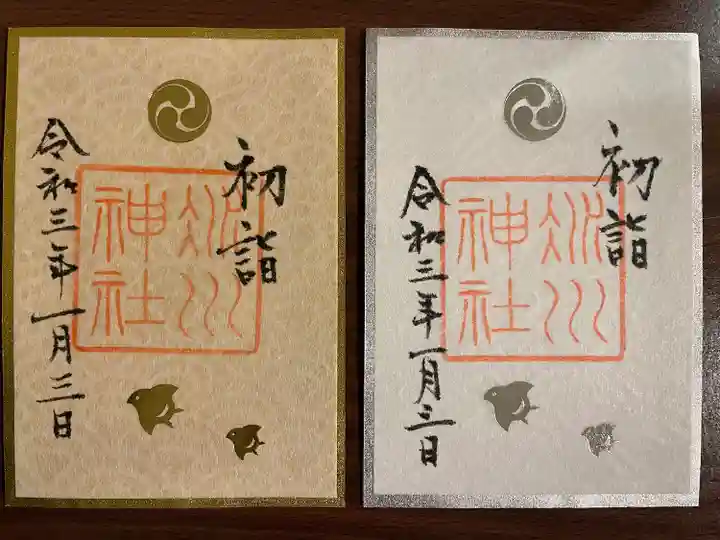 初詣
冰川
神社
令和三年一月三日
初詣
冰川
神社
令和三年一月三日